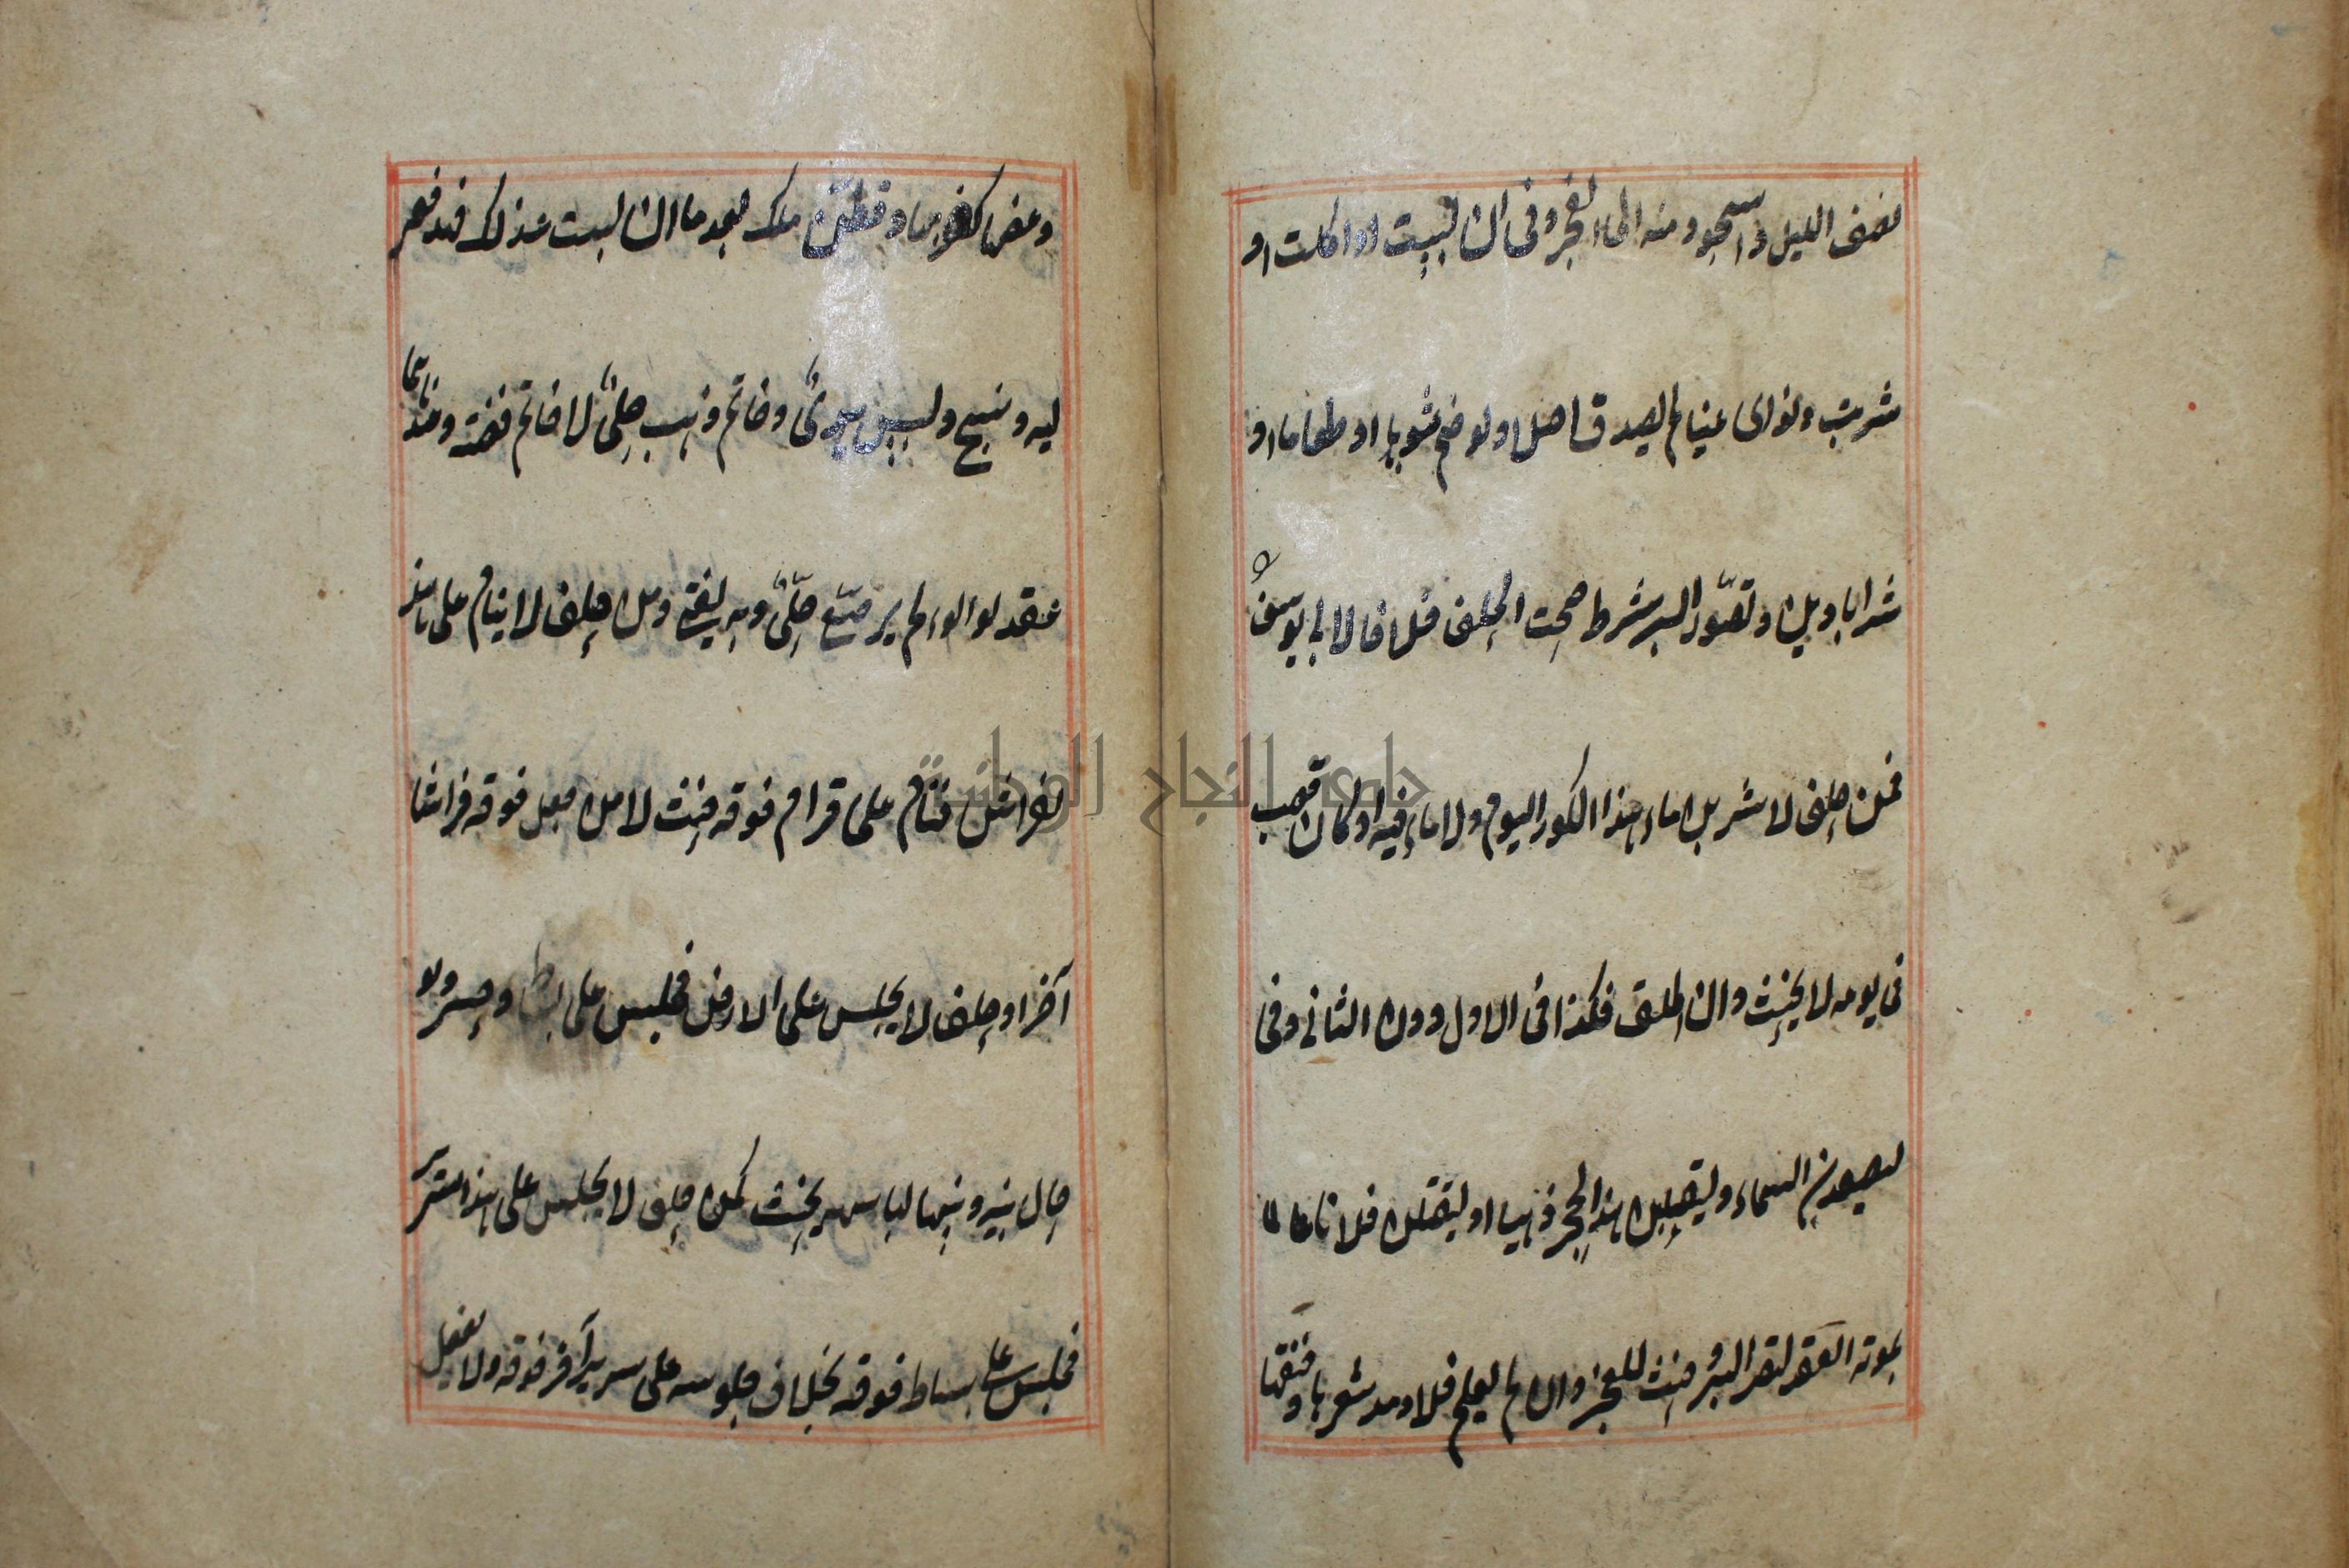 نصف الليل والسحور منه الى الفجر وفى ان لبست او اكلت او
شربت ونوى عينا لم يصدق اصلا ولو ضم ثوبا او طعاما او
شرابا دين وتصور البر شرط صحة الحلف خلافا لابى يوسف
فمن حلف لاشربن ماء هذا الكوز اليوم ولا ماء فيه او كان فصب
فى يومه لا يحنث وان اطلق فكذا فى الاول دون الثانى وفى
ليصعدن السماء وليقلبن هذا الحجر ذهبا او ليقتلن فلانا عالما
بموته انعقد لتصور البر وحنث للعجز وان لم يعلم فلا ومد شعرها وخنقها
وعضها كضربها وقطن ملكه بعد ما ان لبست من غزلك فهدى فغز
له ونسج ولبس هدى وخاتم ذهب حلى لا خاتم فضة ومنها
عقد لؤلؤ لم يرصع حلى وبه يفتى ومن حلف لا ينام على هذا
الفراش فنام على قرام فوقه حنث لا من جعل فوقه فراشا
آخر او حلف لا يجلس على الارض فجلس على بساط او حصير ولو
حال بينه وبينها لباسه يحنث كمن حلف لا يجلس على هذا السرير
فجلس على بساط فوقه بخلاف جلوسه على سرير آخر فوقه ولا يفعل
جامعة النجاح الوطنية